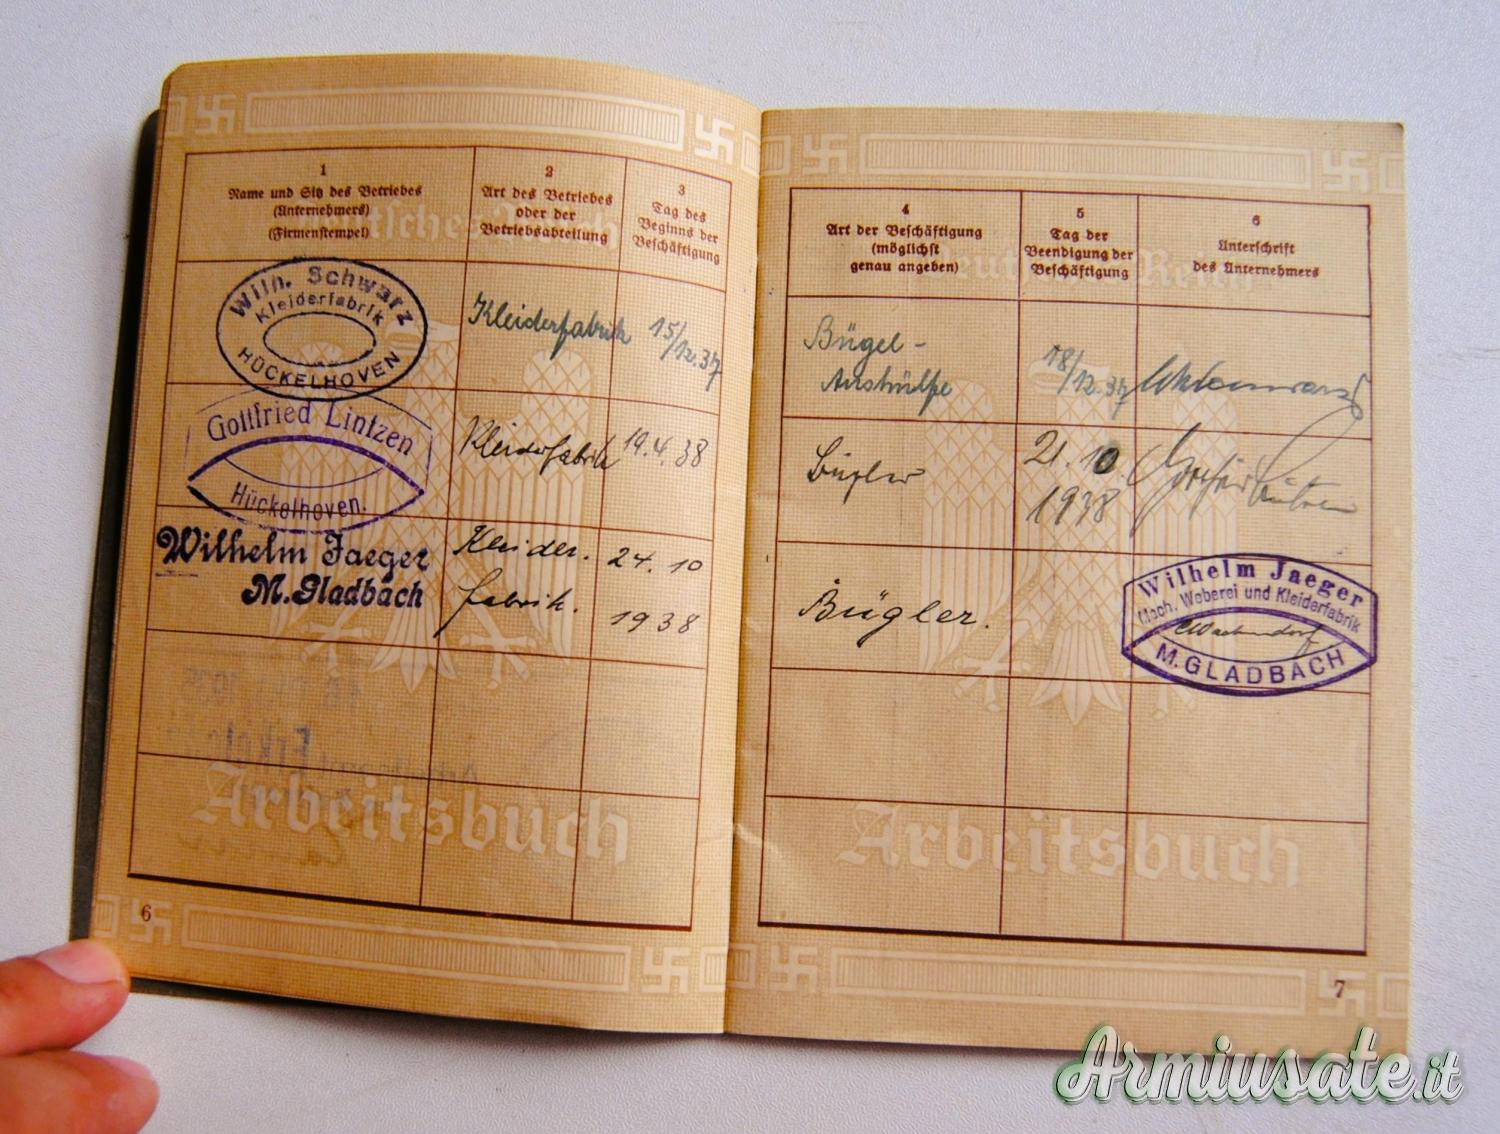 1
Name und Sitz des Betriebes
(Unternehmers)
(Firmenstempel)
2
Art des Betriebes
oder der
Betriebsabteilung
3
Tag des
Beginns der
Beschäftigung
Wilh. Schwarz
Kleiderfabrik
HÜCKELHOVEN
Kleiderfabrik
15/12.37
Gottfried Lintzen
Hückelhoven.
Kleiderfabrik
19.4.38
Wilhelm Jaeger
M.Gladbach
Kleider.
fabrik.
24.10
1938
Arbeitsbuch
6
4
Art der Beschäftigung
(möglichst
genau angeben)
5
Tag der
Beendigung der
Beschäftigung
6
Unterschrift
des Unternehmers
Deutsches Reich
Bügel-
Aushülfe
18/12.37
Bügler
21.10.
1938
Bügler.
Wilhelm Jaeger
Mech. Weberei und Kleiderfabrik
M.GLADBACH
Arbeitsbuch
7
Armiusate.it